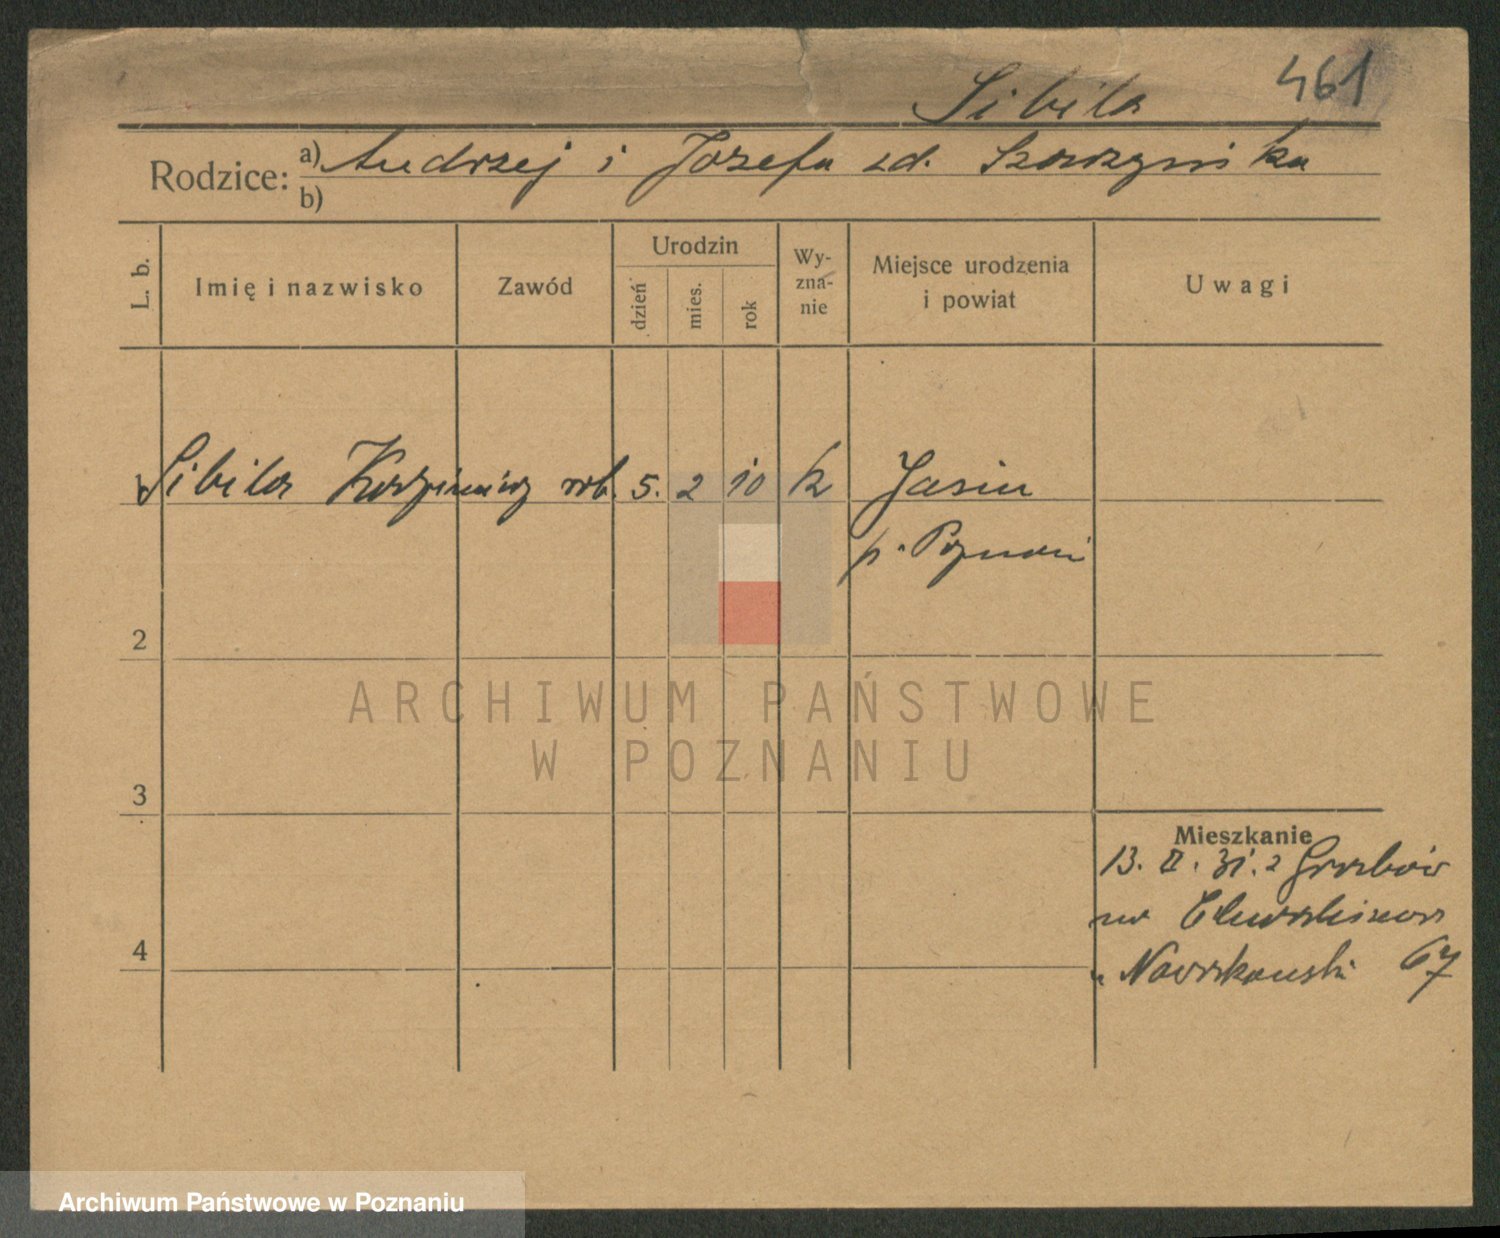 Sibila 461
Rodzice: a) Andrzej i Józefa zd.
b)
L. b. Imię i nazwisko Zawód Urodzin dzień mies. rok Wy-zna-nie Miejsce urodzenia i powiat Uwagi
1 Sibila Kazimierz rob. 5. 2 10 k Jasin
p. Poznań
2
ARCHIWUM PAŃSTWOWE
W POZNANIU
3
Mieszkanie
13. II. 31. z
na
4
u 67
Archiwum Państwowe w Poznaniu